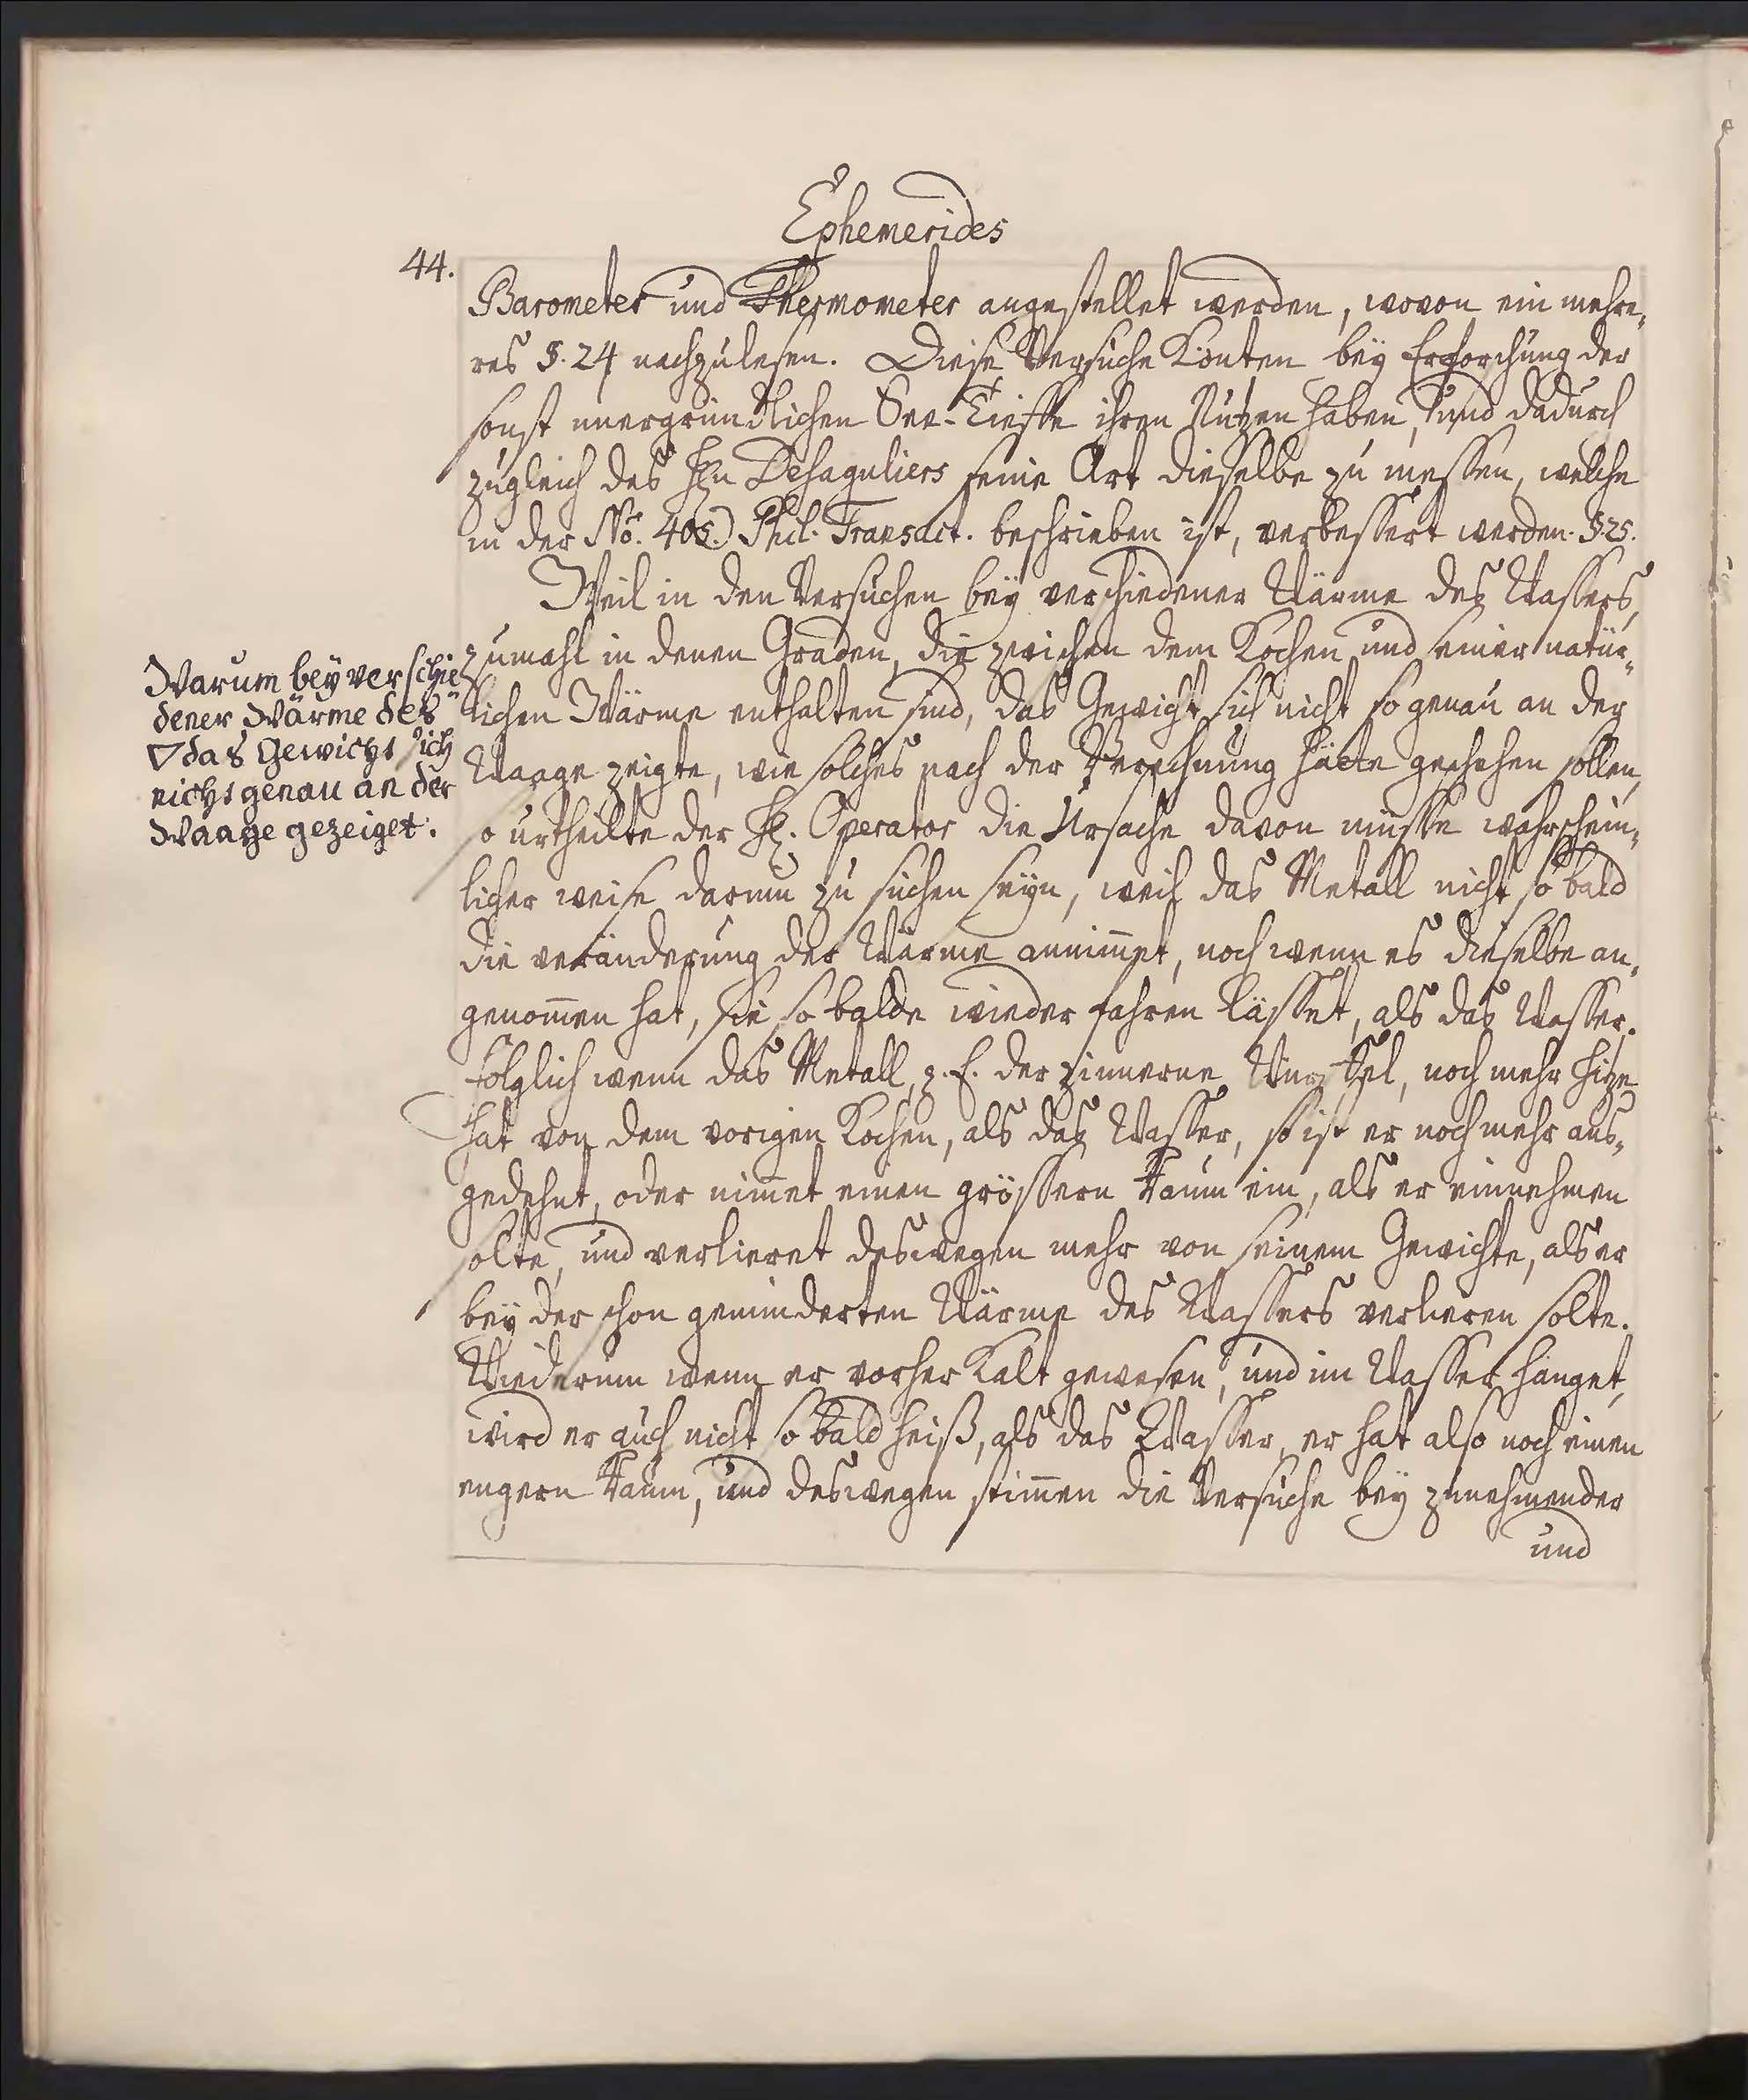 Ephemerides
44.
Barometer und Thermometer angestellet werden, wovon ein mehre-
res §. 24 nachzulesen. Diese Versuche Könten bey Erforschung der
sonst unergründlichen See-Tieffe ihren Nutzen haben, und dadurch
zugleich des Hn Desaguliers seine Art dieselbe zu messen, welche
in der No. 405. Phil. Transact. beschrieben ist, verbessert werden. §. 25.
Weil in den Versuchen bey verschiedener Wärme des Wassers,
zumahl in denen Graden, die zwischen dem Kochen und seiner natür-
lichen Wärme enthalten sind, das Gewicht sich nicht so genau an der
Waage zeigte, wie solches nach der Berechnung hätte geschehen sollen,
so urtheilte der H. Operator die Ursache davon müsse wahrschein-
licher weise darinn zu suchen seyn, weil das Metall nicht so bald
die veränderung der Wärme annim̄et, noch wenn es dieselbe an-
genom̄en hat, sie so balde wieder fahren lässet, als das Wasser.
Folglich wenn das Metall, z. E. der zinnerne Würffel, noch mehr Hitze
hat von dem vorigen Kochen, als das Wasser, so ist er noch mehr aus-
gedehnt, oder nim̄et einen grössern Raum ein, als er einnehmen
solte, und verlieret deswegen mehr von seinem Gewichte, als er
bey der schon geminderten Wärme des Wassers verlieren solte.
Wiederum wenn er vorher Kalt gewesen, und im Wasser hänget,
wird er auch nicht so bald heiß, als das Wasser, er hat also noch einen
engern Raum, und deswegen stim̄en die Versuche bey zunehmender
und
Warum bey verschie
dener Wärme des
▽ das Gewicht sich
nicht genau an der
Waage gezeiget.